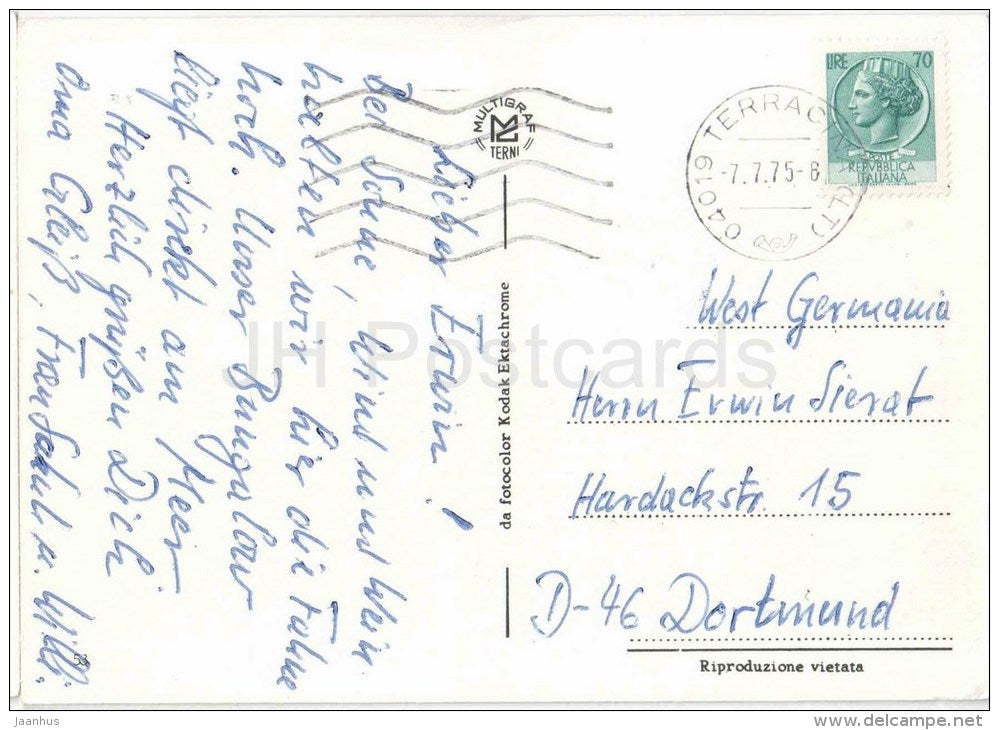 Lieber Erwin!
Bei Sonne, Wind und Wein
halten wir hier die Fahne
hoch. Unser Bungalow
liegt direkt am Meer.
Herzlich grüßen Dich
Oma Gleiß, Frau u. Willi.
53
MULTIGRAF
TERNI
da fotocolor Kodak Ektachrome
LIRE 70
POSTE
REPVBBLICA
ITALIANA
04019 TERRAC (LT)
-7.7.75-8
West Germania
Herrn Erwin Sierat
Hardackstr. 15
D-46 Dortmund
Riproduzione vietata
JH Postcards
Jaanhus
delcampe.net